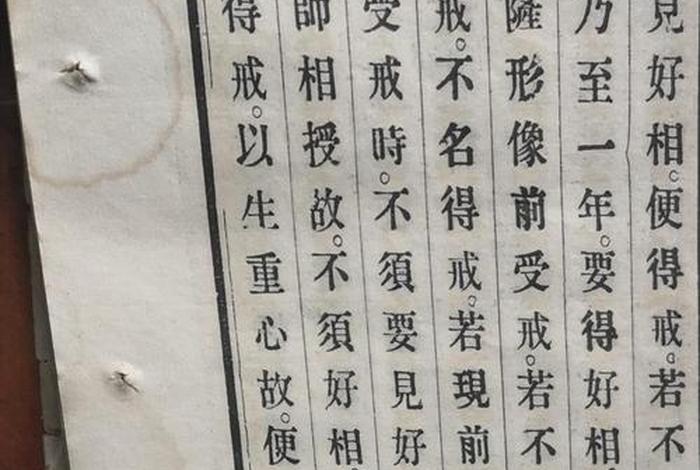 見好相。便得戒。若不
乃至一年。要得好相
薩形像前受戒。若不
戒。不名得戒。若現前
受戒時。不須要見好
師相授故。不須好相。
得戒。以生重心故。便